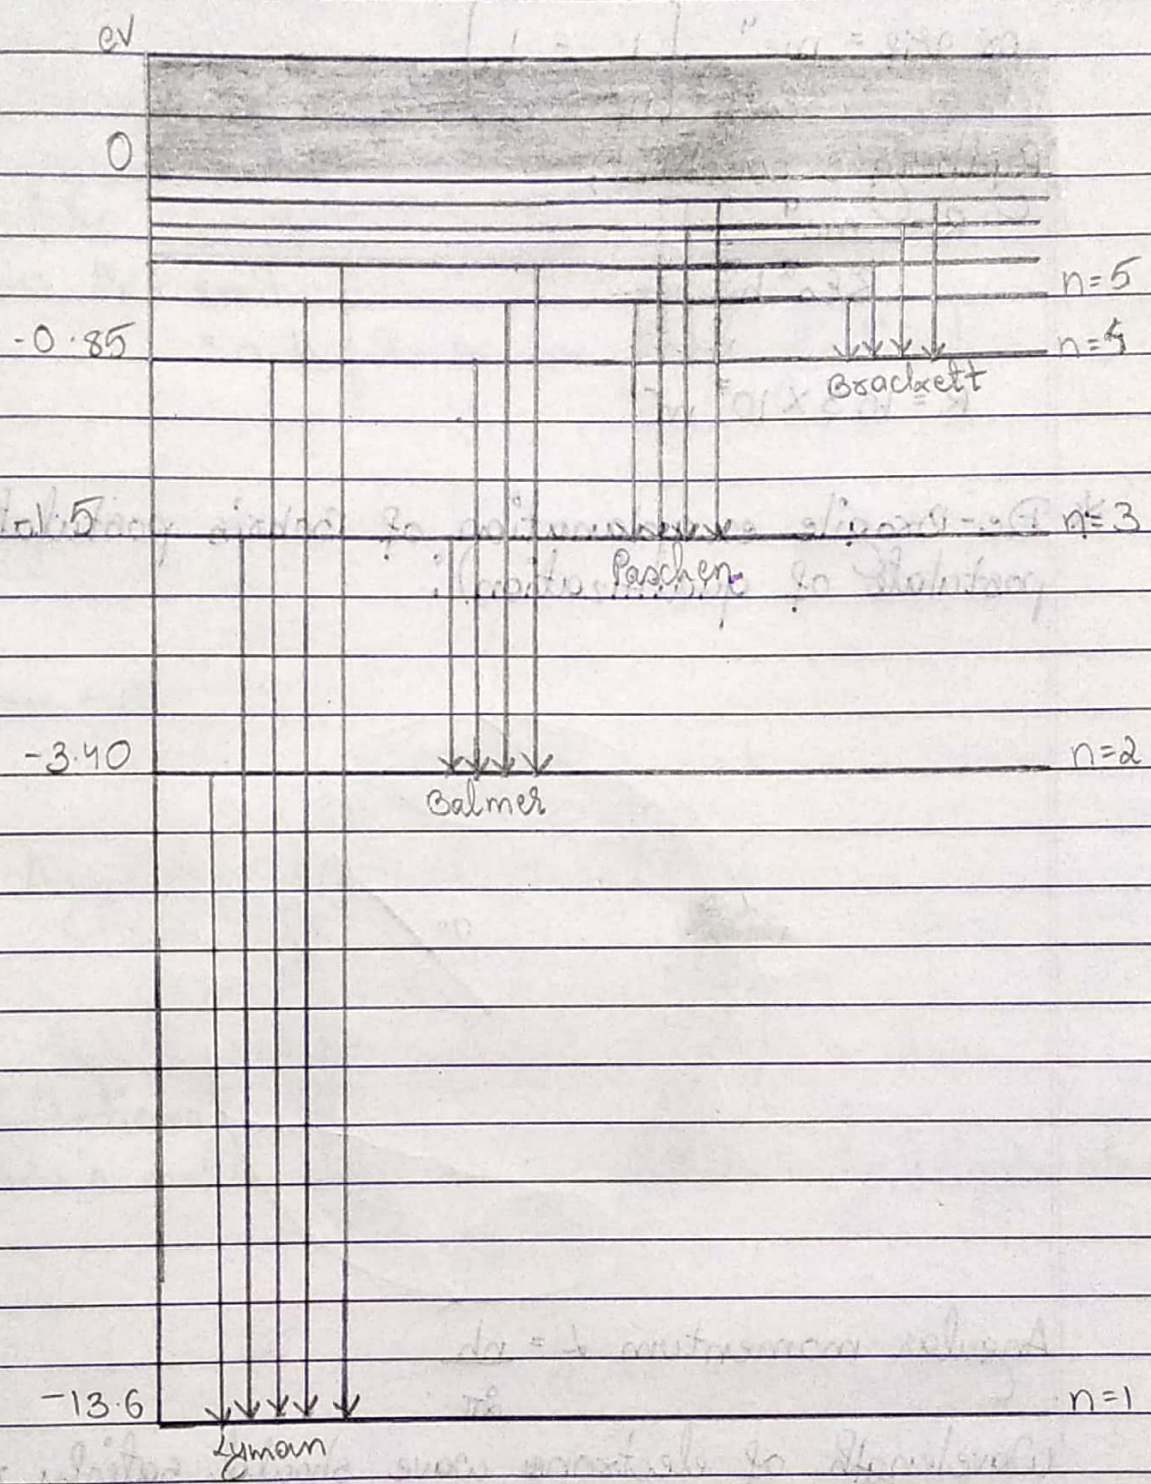 ev
0
n=5
-0.85 n=4
Brackett
-1.5 n=3
Paschen
-3.40 n=2
Balmer
-13.6 n=1
Lyman